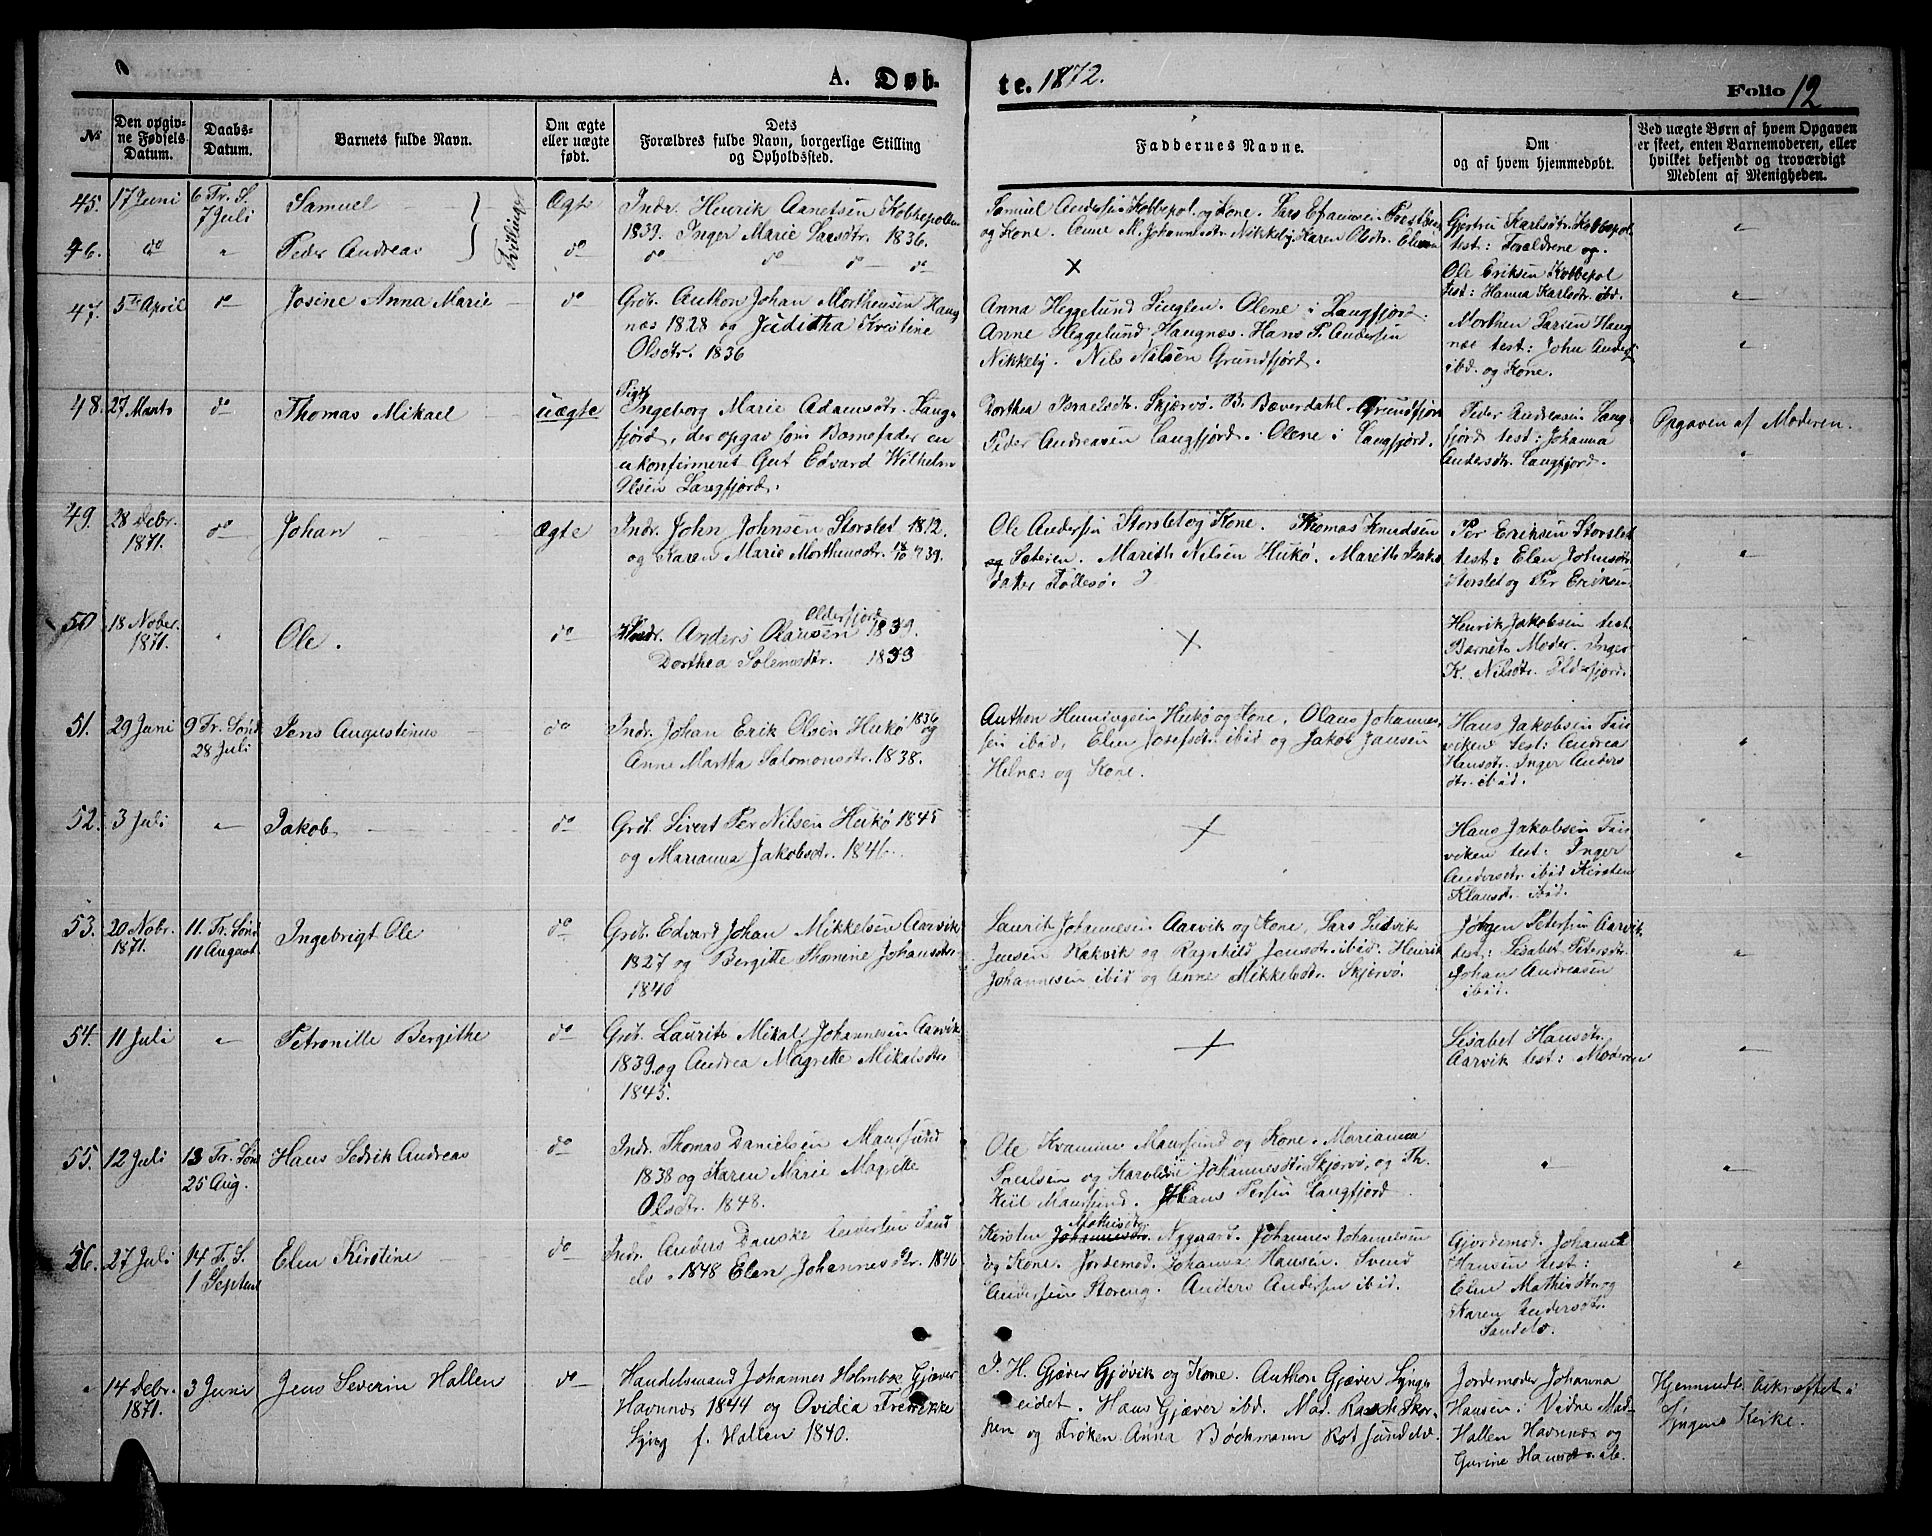 A. Døb-
te. 1872.
Folio 12
№
Den opgiv-
ne Fødsels
Datum.
Daabs-
Datum.
Barnets fulde Navn.
Om ægte
eller uægte
født.
Dets
Forældres fulde Navn, borgerlige Stilling
og Opholdssted.
Faddernes Navne.
Om
og af hvem hjemmedøbt.
Ved uægte Børn af hvem Opgaven
er skeet, enten Barnemoderen, eller
hvilket bekjendt og troværdigt
Medlem af Menigheden.
45. 17 Juni
6 Tr. S.
7 Juli
Samuel
Tvillinger
Ægte
Indr. Henrik Arnetsen Kobbepollen
1839. Inger Marie Larsdtr. 1836.
Samuel Andersen Kobbepol. og Kone. Lars Efraimsen
og Kone. Anne M. Johannesdtr. Nikkeby. Karen Olsdtr.
Gjertru Karlsdtr. Kobbepol
test: Forældrene og
46. do
"
Peder Andreas
do
do do do do
X
Ole Eriksen Kobbepol
Test: Hanna Karlsdtr. ibd.
47. 5te April
do
Josine Anna Marie
do
Grdb. Anthon Johan Morthensen Haug-
næs 1828 og Juditha Kristine
Olsdtr. 1836
Anna Heggelund Olene i Langfjord.
Anne Heggelund Haugnæs. Hans P. Andersen
Nikkeby. Nils Nilsen Grundfjord.
Morthen Larsen Haug
næs test: John Anders
ibd. og Kone.
48. 27 Marts
do
Thomas Mikael
uægte
Pige
Ingeborg Marie Adamsdtr. Lang-
fjord, der opgav som Barnefader en
ukonfirmeret Gut Edvard Wilhelm
Olsen Langfjord.
Dorthea Israelsdtr. Skjærvø. B. Bæverdahl. Grundfjord
Peder Andreasen Langfjord. Olene i Langfjord.
Peder Andreasen Lang-
fjord test: Johanna
Andersdtr. Langfjord.
Opgaven af Moderen.
49. 28 Debr.
1871.
do
Johan
Ægte
Indr. John Johnsen Storslet 1812.
og Karen Marie Morthensdtr. 18/10 1739.
Ole Andersen Storslet og Kone. Thomas Knudsen
Sæteren. Marith Nilsen Hukø. Marith Isaks
datter
Per Eriksen Storslet
test: Elen Johnsdtr.
Storslet og Per Eriksen
50 18 Nober.
1871.
"
Ole.
do
Indr. Anders Olausen Olderfjord 1839.
Dorthea Solemsdtr. 1833
X
Henrik Jakobsen test:
Barnets Moder. Inger
K. Nilsdtr. Olderfjord.
51. 29 Juni
9 Tr. Sønd.
28 Juli
Jens Augustinus
do
Indr. Johan Erik Olsen Hukø 1836 og
Anne Martha Salomonsdtr. 1838.
Anthon Henningsen Hukø og Kone, Olaus Johannes-
sen ibid, Elen Josefsdtr. ibid og Jakob Jansen
Helnæs og Kone.
Hans Jakobsen Tai-
viken test: Andrea
Hansdtr. Inger Anders
dtr. ibid.
52. 3 Juli
"
Jakob
do
Grdb. Sivert Per Nilsen Hukø 1845
og Marianna Jakobsdtr. 1846.
X
Hans Jakobsen Tai-
viken test: Inger
Andersdtr. ibid Kirsten
Klausdtr. ibid.
53. 20 Nobr.
1871.
11. Tr. Sønd
11 August
Ingebrigt Ole
do
Grdb. Edvard Johan Mikkelsen Aarvik
1827 og Bergitte Thomine Johansdtr.
1840
Laurits Johannesen Aarvik og Kone, Lars Ludvik
Jensen Rakvik og Ragnhild Jensdtr. ibid. Henrik
Johannesen ibid og Anne Mikkelsdtr. Skjervø.
Jørgen Petersen Aarvik
test: Lisabet Petersdtr.
Johan Andreasen
ibid.
54. 11 Juli
"
Petronille Bergithe
do
Grdb. Laurits Mikal Johannesen Aarvik
1839. og Andrea Magrette Mikalsdtr.
1845.
X
Lisabet Hansdtr.
Aarvik test: Moderen
55. 12 Juli
13 Tr. Sønd
25 Aug.
Hans Sedrik Andreas
do
Indr. Thomas Danielsen Maursund
1838 og Karen Marie Magrette
Olsdtr. 1848.
Ole Kvamme Maursund og Kone. Marianna
Paulsen og Karoline Johannesdtr. Skjervø, og Th.
Kiil Maursund. Hans Persen Langfjord
56. 27 Juli
14 Tr. S.
1 Septem
Elen Kirstine
do
Indr. Anders Danske Andersen Sand
elv 1848 Elen Johannesdtr. 1846
Kirsten Johannesdtr. Mathisdtr. Nygaard. Johannes Johannesen
og Kone. Jordemod. Johanna Hansen. Svend
Andersen Storeng. Anders Andersen ibid.
Gjordemod. Johanna
Hansen test:
Elen Mathisdtr. og
Karen Andersdtr.
Sandelv.
" 14 Debr.
1871.
3 Juni
Jens Severin Hallen
do
Handelsmand Johannes Holmboe Gjæver
Havnnæs 1844 og Ovidia Fredrikke
Lyng f. Hallen 1840.
P. H. Gjæver Gjøvik og Kone. Anthon Gjæver Lyngs
eidet. Hans Gjæver ibd. Mad. Rasch Skor-
pen og Frøken Anna Bøckmann Rotsundelv.
Jordemoder Johanna
Hansen: Vidne Mad-
Hallen Havnnæs og
Gurine Hansd
Hjemmedb. bekræftet i
Lyngens Kirke.